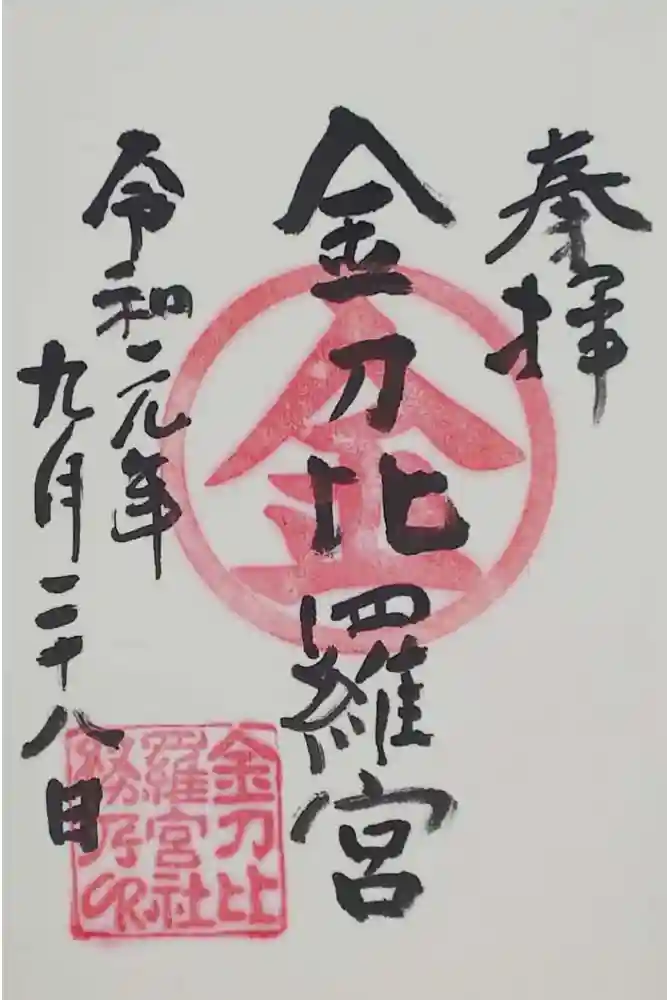 奉拝
金刀比羅宮
令和元年
九月二十八日
金
金刀比
羅宮社
務乃印